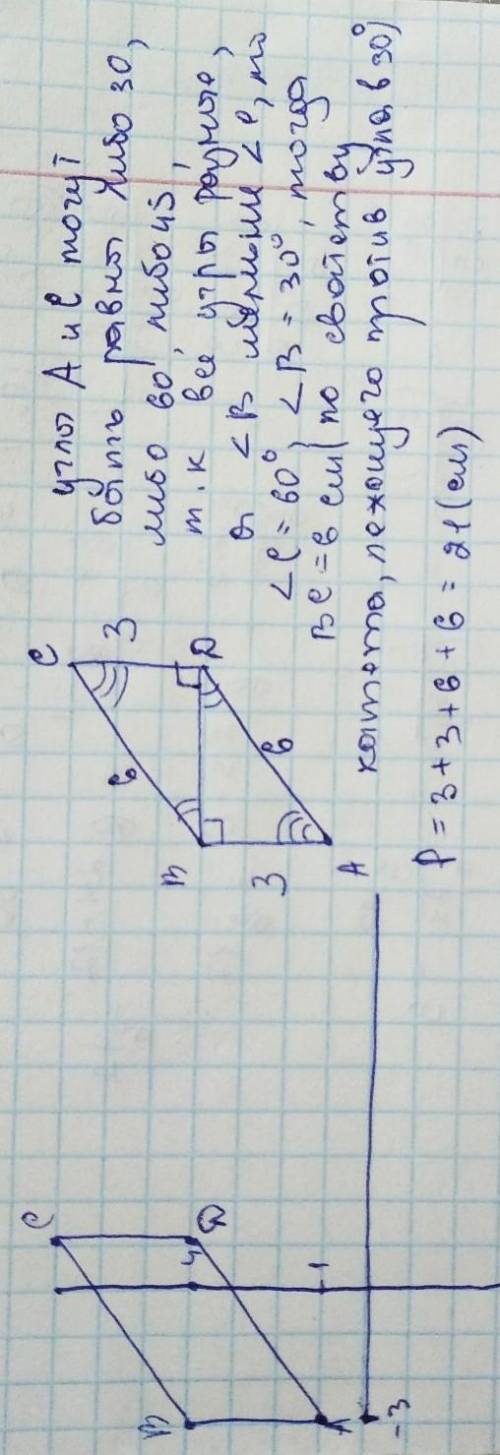 углы A и C могут
быть равны либо 30,
либо 60, либо 45
т.к все углы разные,
а <B меньше <C, то
<C = 60° } <B = 30°, тогда
BC = 6 см (по свойству
катета, лежащего против угла в 30°)
P = 3 + 3 + 6 + 6 = 21 (см)
B
C
A
D
4
1
-3
B
C
A
D
6
3
3
6